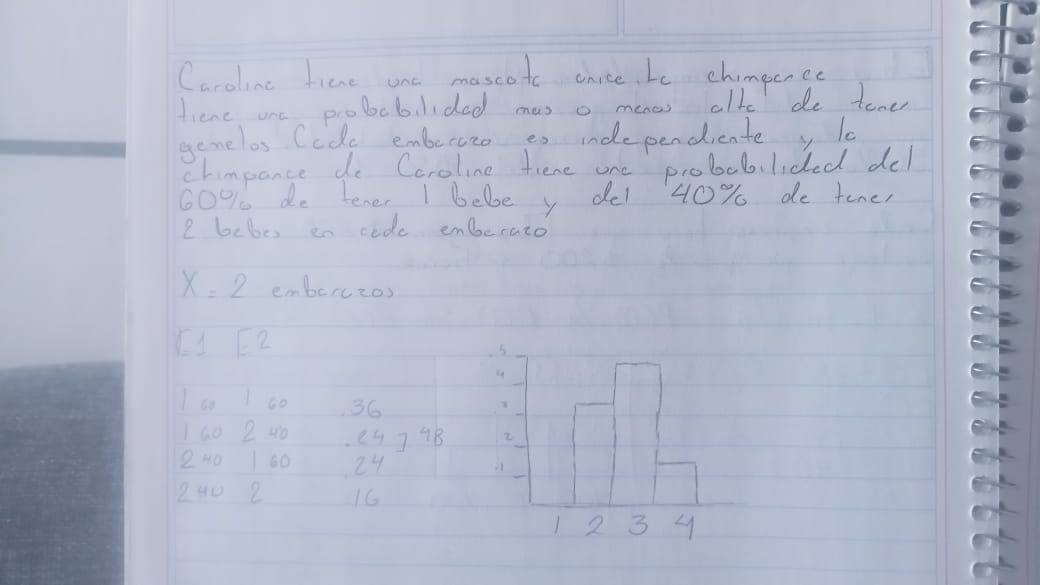 Caroline tiene una mascota unica. La chimpance
tiene una probabilidad mas o menos alta de tener
gemelos Cada embarazo es independiente y la
chimpance de Caroline tiene una probabilidad del
60% de tener 1 bebe y del 40% de tener
2 bebes en cada embarazo
X = 2 embarazos
E1 E2
1 60 1 60 .36
1 60 2 40 .24 ] 48
2 40 1 60 .24
2 40 2 16
.5
4
.3
2
.1
1 2 3 4